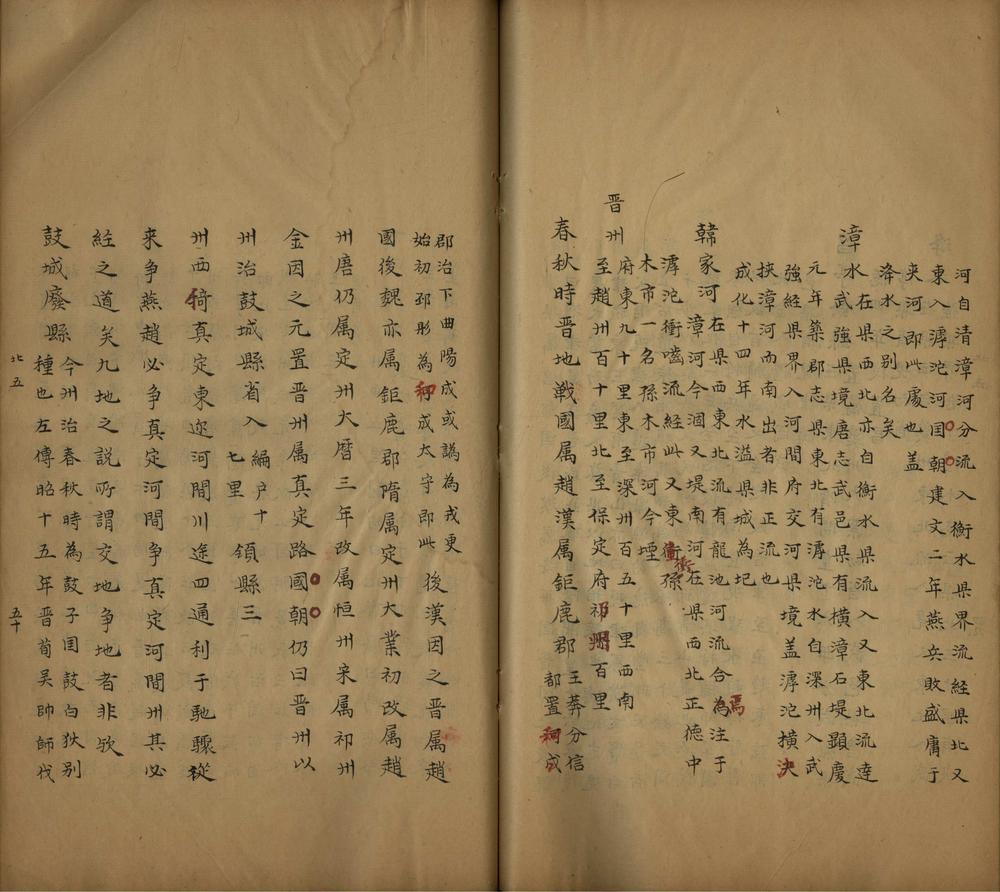 河自清漳河分流入衡水県界流経県北又
東入滹沱河囯朝建文二年燕兵敗盛庸于
夹河即此處也蓋
洚水之别名矣
漳水在県西北亦自衡水県流入又東北流逹
武強県境唐志武邑県有橫漳石堤顕慶
元年築郡志県東北有滹沱水自深州入武
強経県界入河間府交河県境盖滹沱横决
挟漳河而南出者非正流也
成化十四年水溢県城為圮
韓家河在県西東北流有龍池河流合焉注于
漳河今涸又堤南河在県西北正德中
滹沱衝嚙流経此又東衝孫
木市一名孫木市河今堙
晋州府東九十里東至深州百五十里西南
至趙州百十里北至保定府祁州百里
春秋時晋地戰國属趙漢属鉅鹿郡王莽分信
都置和成
郡治下曲陽成或譌為戎更
始初邳彤為和成太守即此後漢因之晋属趙
國後魏亦属鉅鹿郡隋属定州大業初改属趙
州唐仍属定州大曆三年改属恒州宋属祁州
金因之元置晋州属真定路國朝仍曰晋州以
州治鼓城縣省入編户十
七里領縣三
州西犄真定東迩河間川途四通利于馳驟從
来争燕趙必争真定河間争真定河間州其必
経之道矣九地之説所謂交地争地者非欤
鼓城廢縣今州治春秋時為鼓子囯鼓白狄别
種也左傳昭十五年晋荀吴帥師伐
北五
五十